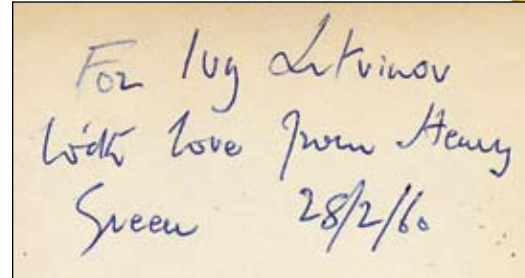 For Ivy Litvinov
with love from Henry
Green 28/2/60